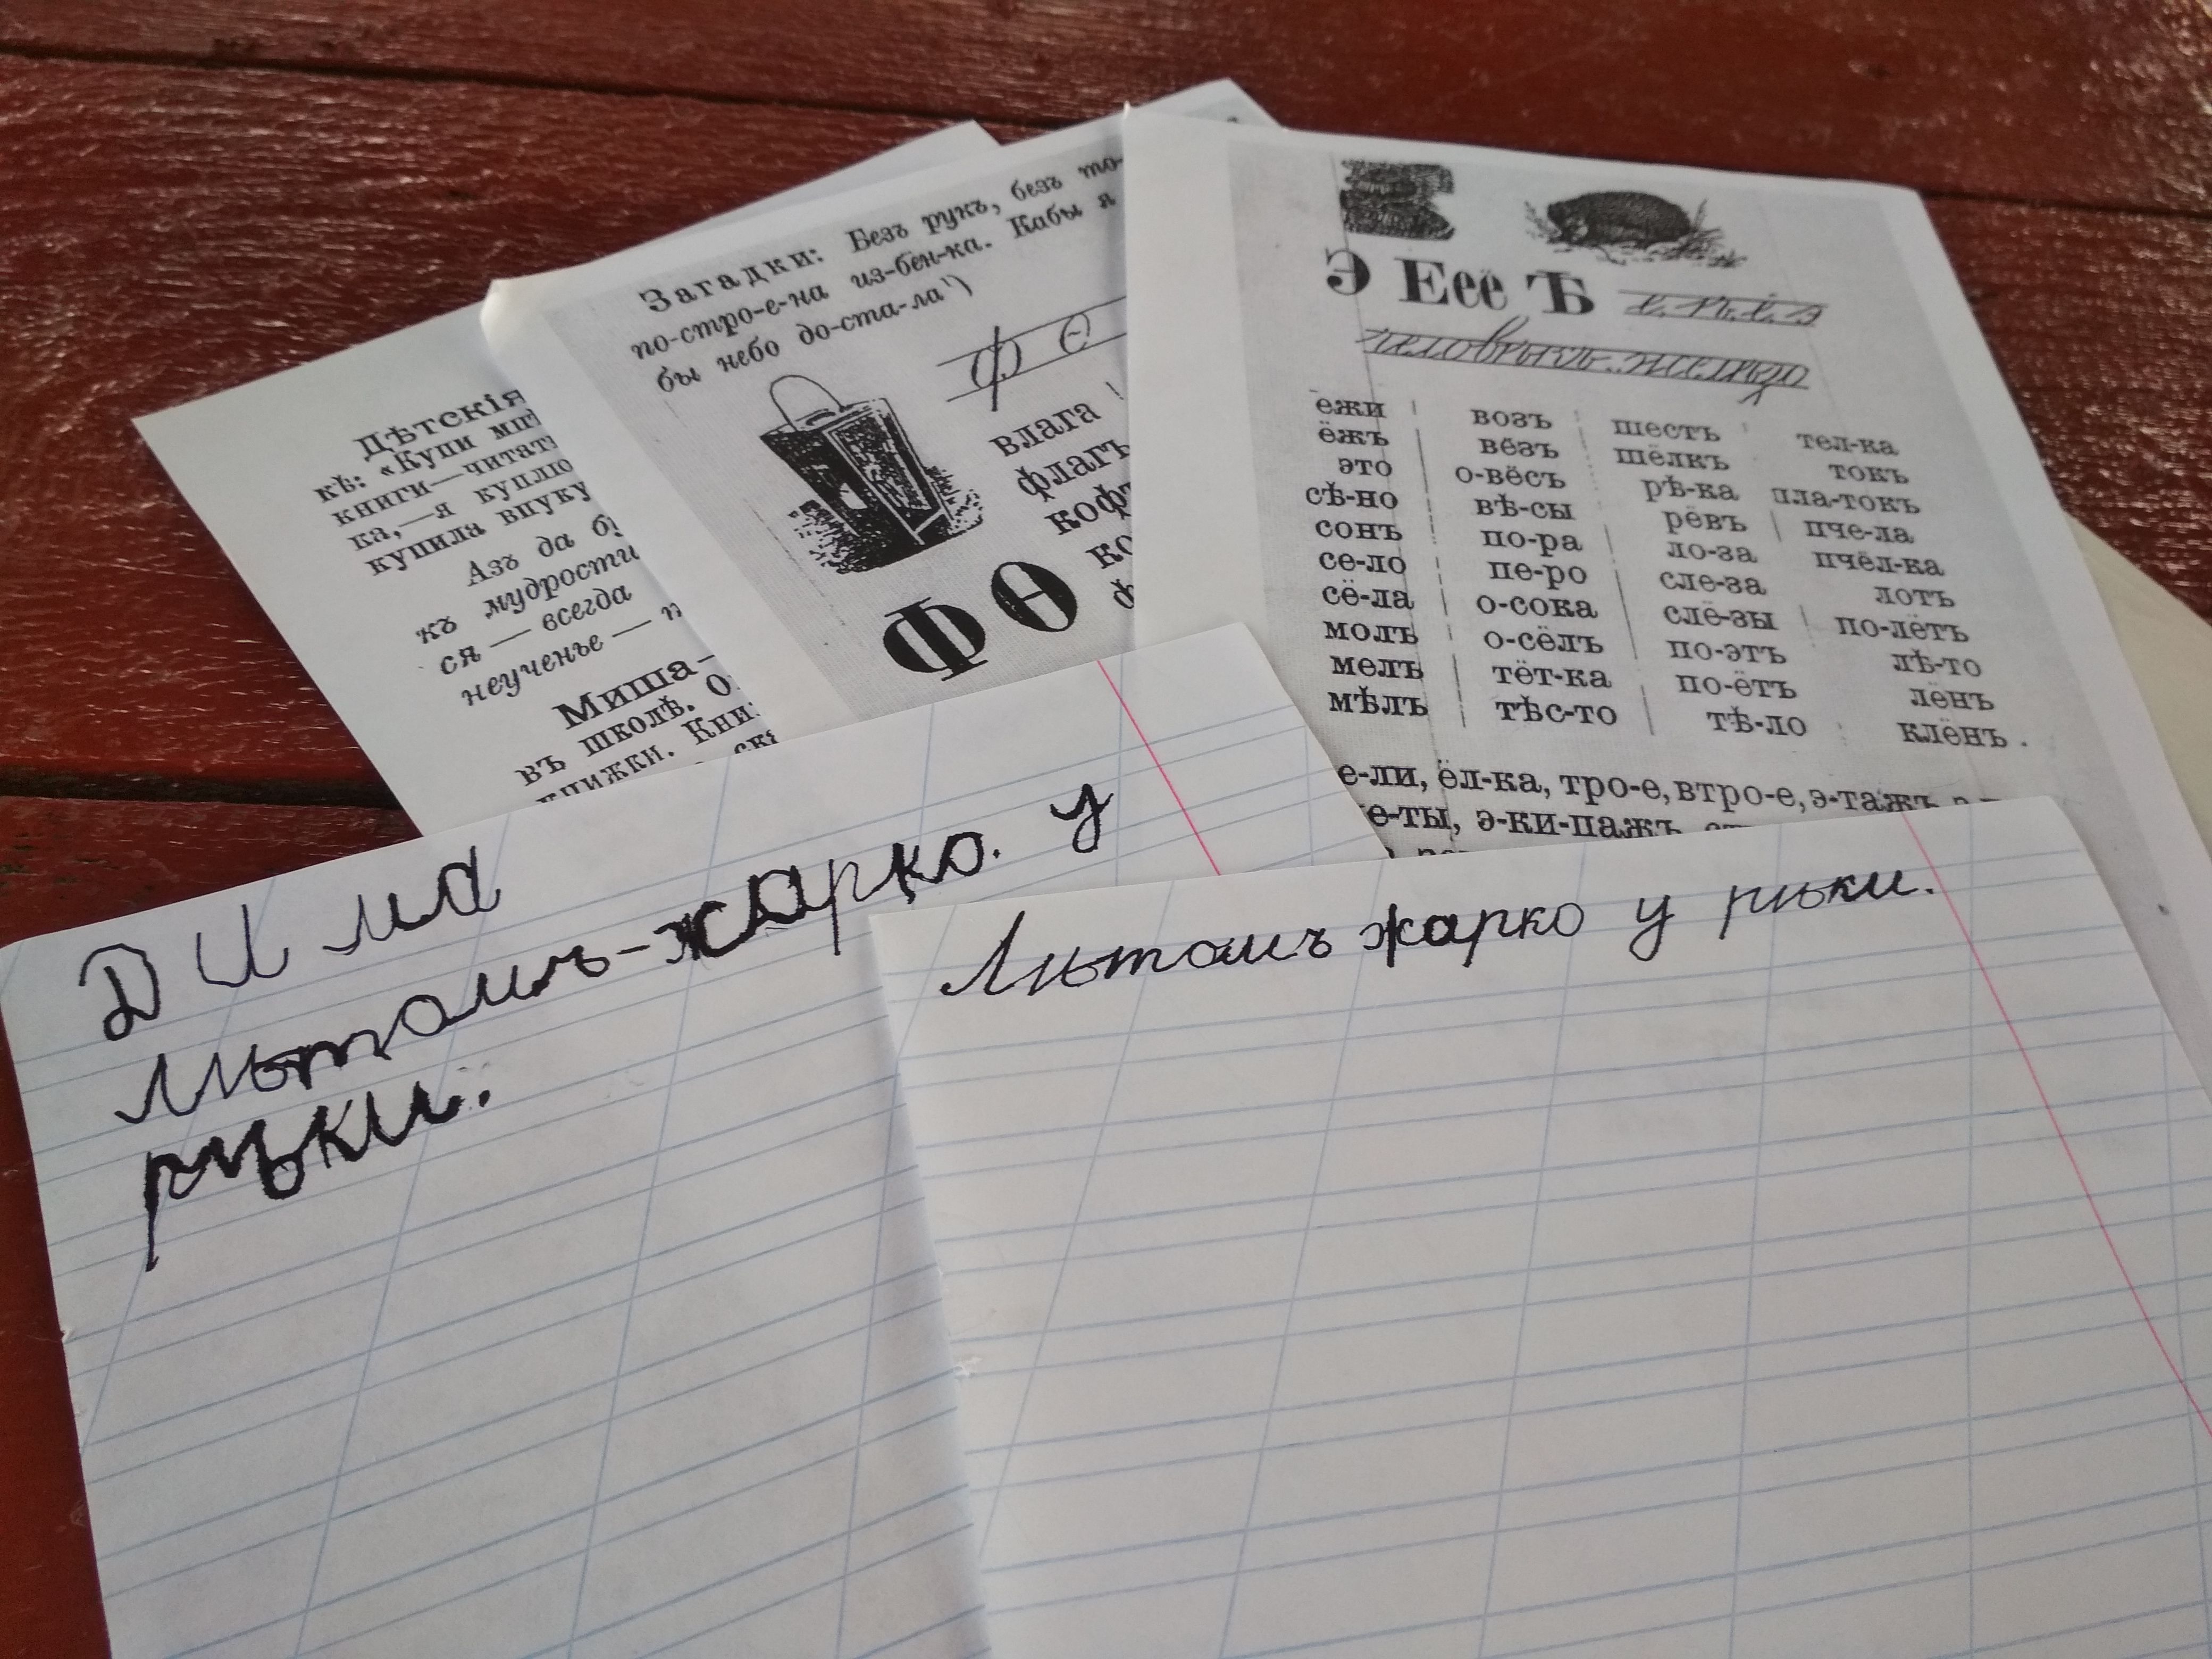 Дѣтскія
кѣ: «Купи мнѣ
книги—читать
ка,—я куплю
купила внуку
Азъ да бу
къ мудрости
ся — всегда
неученье —
Миша—
въ школѣ. О
книжки. Кни
Загадки: Безъ рукъ, безъ то-
по-стро-е-на из-бен-ка. Кабы я
бы небо до-ста-ла¹)
Ф Ѳ
влага
флагъ
кофт
ко
ф
Ф Ѳ
Э Ееё Ѣ е. ѣ. ё. э
человѣкъ. желѣзо
ежи возъ шестъ тел-ка
ёжъ вёзъ шёлкъ токъ
это о-вёсъ рѣ-ка пла-токъ
сѣ-но вѣ-сы рёвъ пче-ла
сонъ по-ра ло-за пчёл-ка
се-ло пе-ро сле-за лотъ
сё-ла о-сока слё-зы по-лётъ
молъ о-сёлъ по-этъ лѣ-то
мелъ тёт-ка по-ётъ лёнъ
мѣлъ тѣс-то тѣ-ло клёнъ.
е-ли, ёл-ка, тро-е, втро-е, э-тажъ
е-ты, э-ки-пажъ
Дима
Лѣтомъ-жарко. у
рѣки.
Лѣтомъ жарко у рѣки.